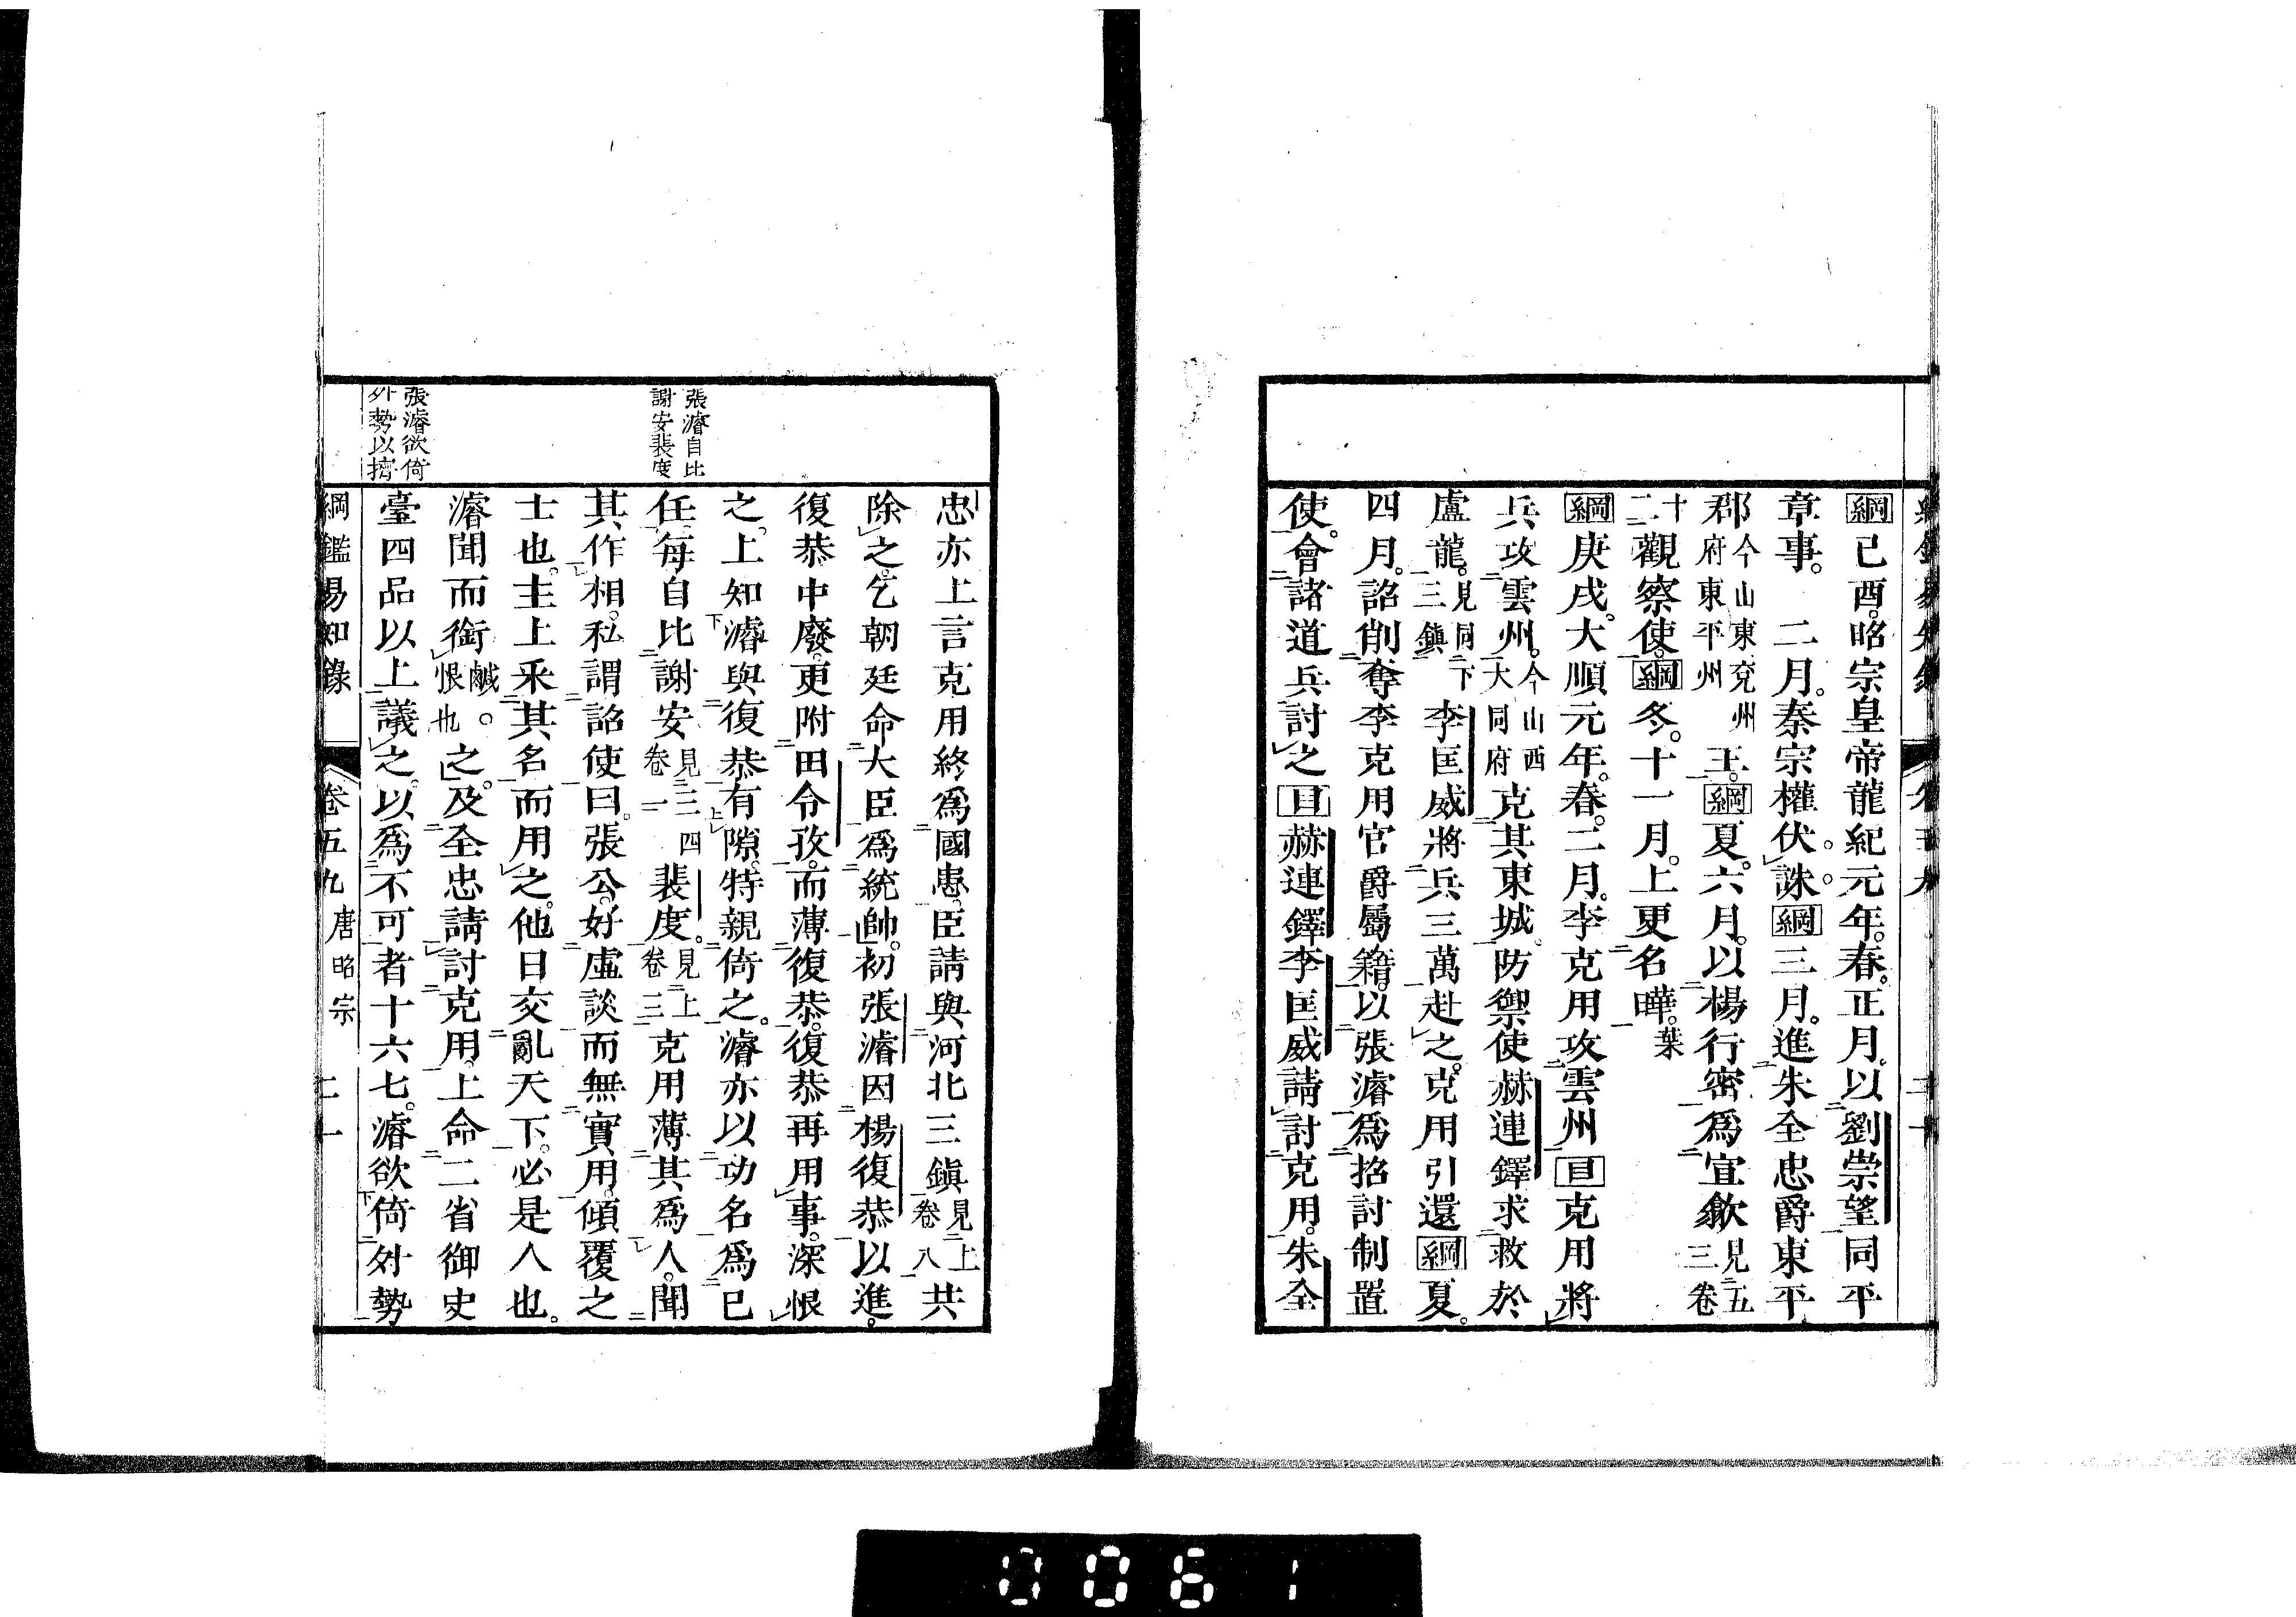 綱己酉。昭宗皇帝龍紀元年。春。正月。以劉崇望同平
章事。二月。秦宗權伏誅。綱三月。進朱全忠爵東平
郡今山東兗州府東平州王。綱夏。六月。以楊行密爲宣歙見五三卷
十二觀察使。綱冬。十一月。上更名曄。葉
綱庚戌。大順元年。春。二月。李克用攻雲州目克用將
兵攻雲州。今山西大同府克其東城。防禦使赫連鐸求救於
盧龍。見同下三鎮李匡威將兵三萬赴之。克用引還綱夏。
四月。詔削奪李克用官爵屬籍。以張濬爲招討制置
使。會諸道兵討之目赫連鐸李匡威請討克用。朱全
忠亦上言克用終爲國患。臣請與河北三鎭見上卷八共
除之。乞朝廷命大臣爲統帥。初張濬因楊復恭以進。
復恭中廢。更附田令孜。而薄復恭。復恭再用事。深恨
之。上知濬與復恭有隙。特親倚之。濬亦以功名爲己
任。每自比謝安見三四卷一裴度。見上卷三克用薄其爲人。聞
其作相。私謂詔使曰。張公好虛談而無實用。傾覆之
士也。主上釆其名而用之。他日交亂天下。必是人也。
濬聞而銜鹹。恨也之。及全忠請討克用。上命二省御史
臺四品以上議之。以爲不可者十六七。濬欲倚外勢
張濬自比
謝安裴度
張濬欲倚
外勢以擠
綱鑑易知錄 卷五九 唐昭宗 二一